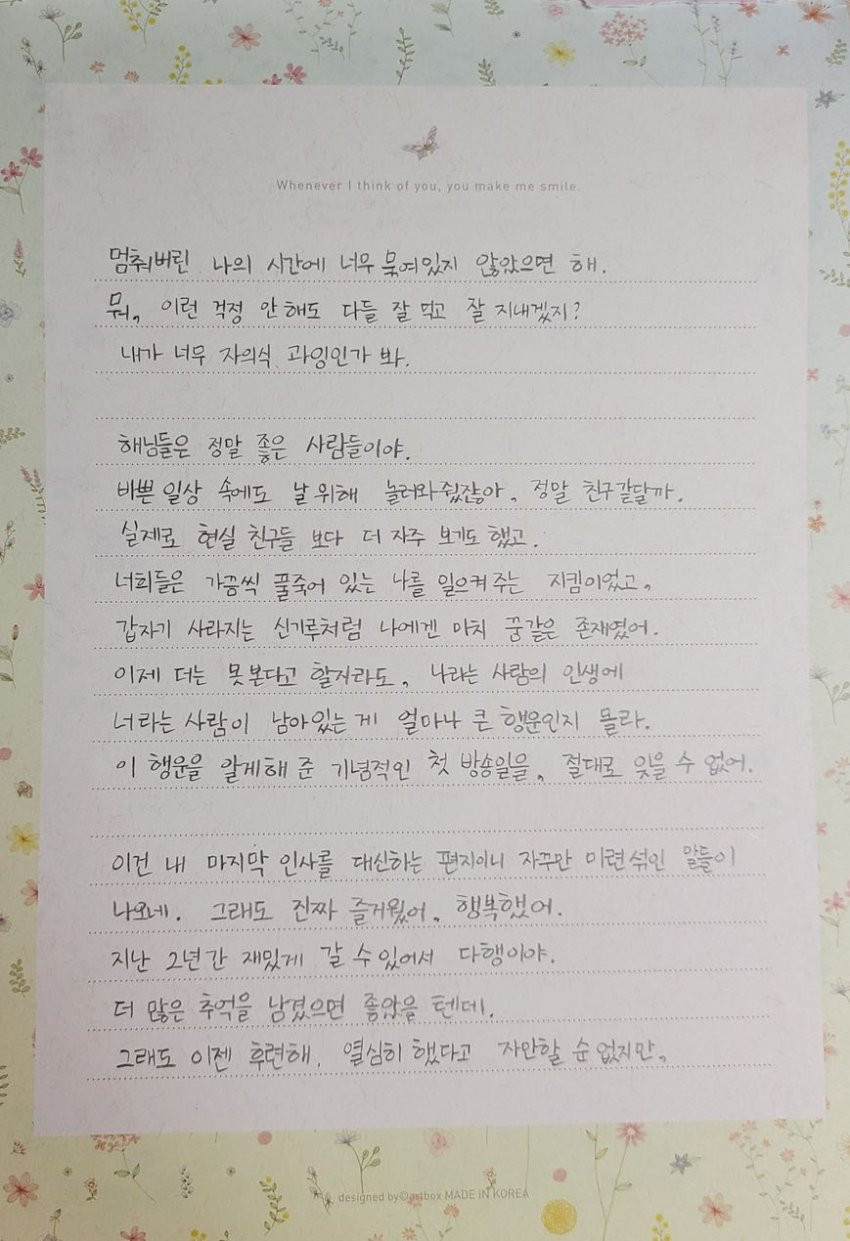 Whenever I think of you, you make me smile.
멈춰버린 나의 시간에 너무 묶여있지 않았으면 해.
뭐, 이런 걱정 안 해도 다들 잘 먹고 잘 지내겠지?
내가 너무 자의식 과잉인가 봐.
해님들은 정말 좋은 사람들이야.
바쁜 일상 속에도 날 위해 놀러와줬잖아, 정말 친구같달까.
실제로 현실 친구들 보다 더 자주 보기도 했고.
너희들은 가끔씩 풀죽어 있는 나를 일으켜 주는 지킴이었고,
갑자기 사라지는 신기루처럼 나에겐 마치 꿈같은 존재였어.
이제 더는 못 본다고 할지라도, 나라는 사람의 인생에
너라는 사람이 남아있는 게 얼마나 큰 행운인지 몰라.
이 행운을 알게해 준 기념적인 첫 방송일을, 절대로 잊을 수 없어.
이건 내 마지막 인사를 대신하는 편지이니 자꾸만 미련 섞인 말들이
나오네. 그래도 진짜 즐거웠어, 행복했어.
지난 2년간 재밌게 갈 수 있어서 다행이야.
더 많은 추억을 남겼으면 좋았을 텐데.
그래도 이젠 후련해. 열심히 했다고 자만할 순 없지만,
designed by©artbox MADE IN KOREA